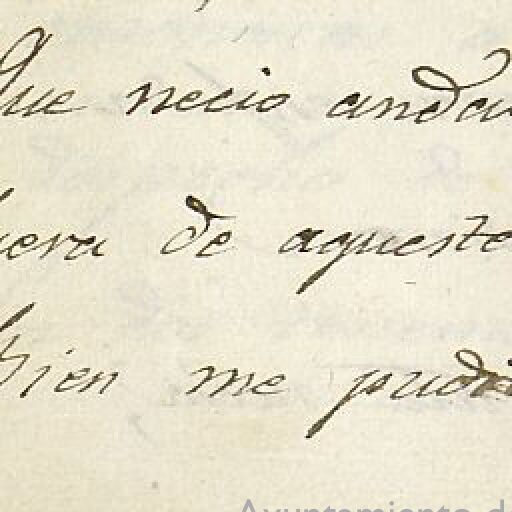 Que necio anda
uera de aqueste
Bien me pudi
Ayuntamiento de